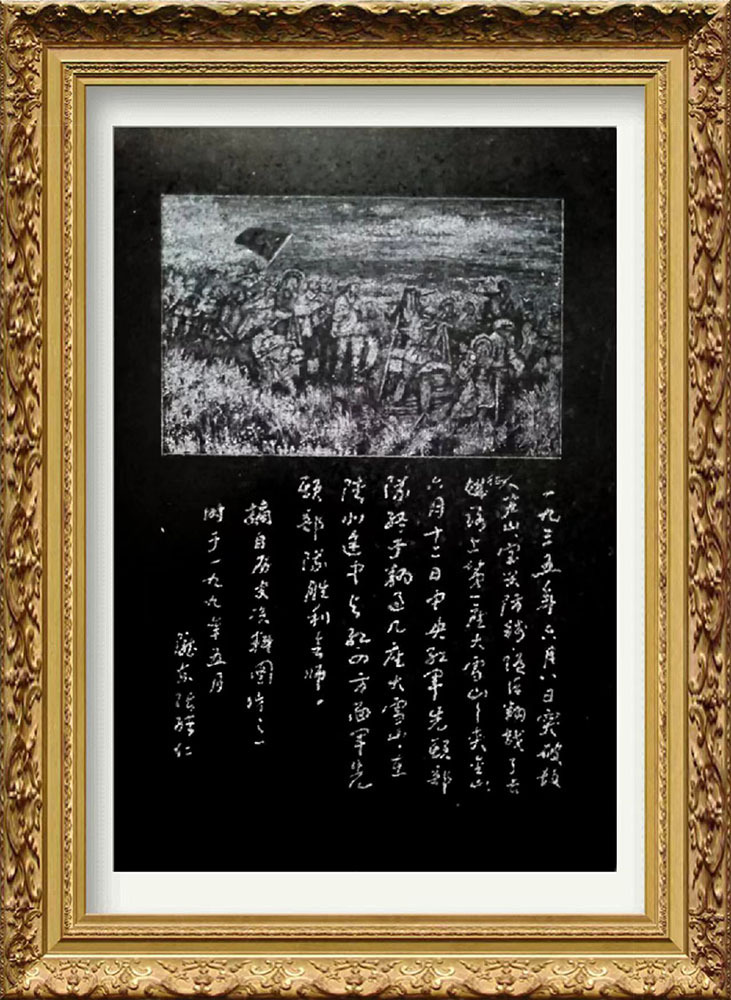 一九三五年六月八日突破敌
人芦山、宝兴防线，随后翻越了长
征路上第一座大雪山—夹金山
六月十二日中央红军先头部
队终于翻过几座大雪山，在
达维途中与红四方面军先
头部队胜利会师。
摘自历史资料图片之一
时于一九九年五月
张 仁